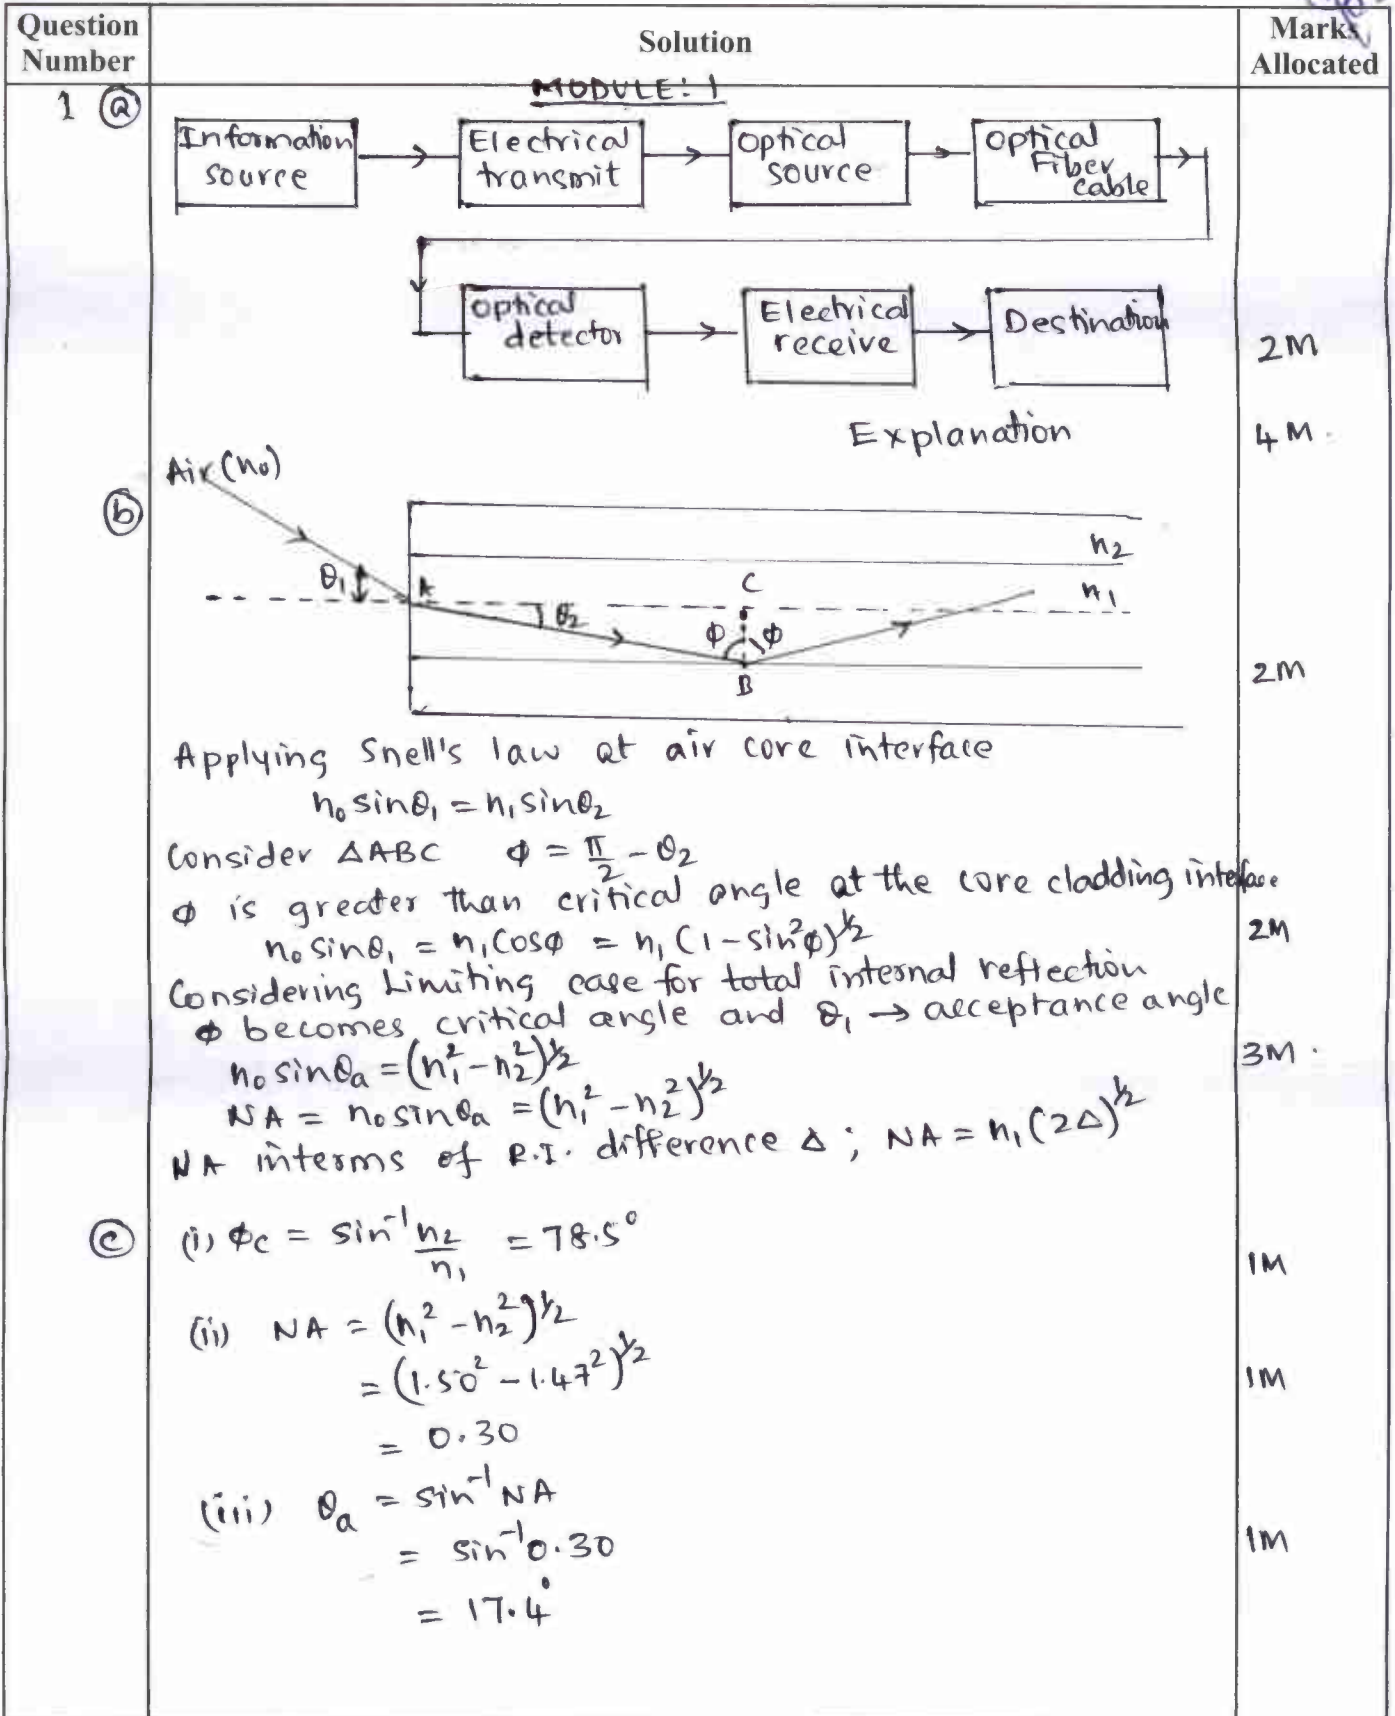 Question Number
Solution
Marks Allocated
MODULE: 1
1 (a)
Information source
Electrical transmit
Optical source
Optical Fiber cable
Optical detector
Electrical receive
Destination
2M
Explanation
4M.
(b)
Air (n₀)
n₂
θ₁
A
C
n₁
θ₂
ϕ
ϕ
B
2M
Applying Snell's law at air core interface
n₀ sinθ₁ = n₁ sinθ₂
Consider ΔABC ϕ = π/2 - θ₂
ϕ is greater than critical angle at the core cladding interface
n₀ sinθ₁ = n₁ cosϕ = n₁ (1 - sin²ϕ)^½
2M
Considering Limiting case for total internal reflection
ϕ becomes critical angle and θ₁ → acceptance angle
n₀ sinθₐ = (n₁² - n₂²)^½
3M.
NA = n₀ sinθₐ = (n₁² - n₂²)^½
NA interms of R.I. difference Δ; NA = n₁(2Δ)^½
(c)
(i) ϕc = sin⁻¹ n₂/n₁ = 78.5°
1M
(ii) NA = (n₁² - n₂²)^½
= (1.50² - 1.47²)^½
1M
= 0.30
(iii) θₐ = sin⁻¹ NA
= sin⁻¹ 0.30
1M
= 17.4°